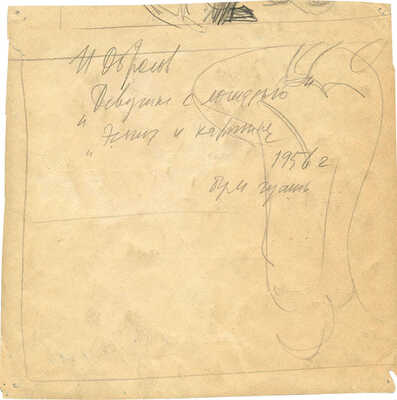 И Обросов
"Девушка с лошадью"
"Эскиз к картине
1956 г
бум гуашь